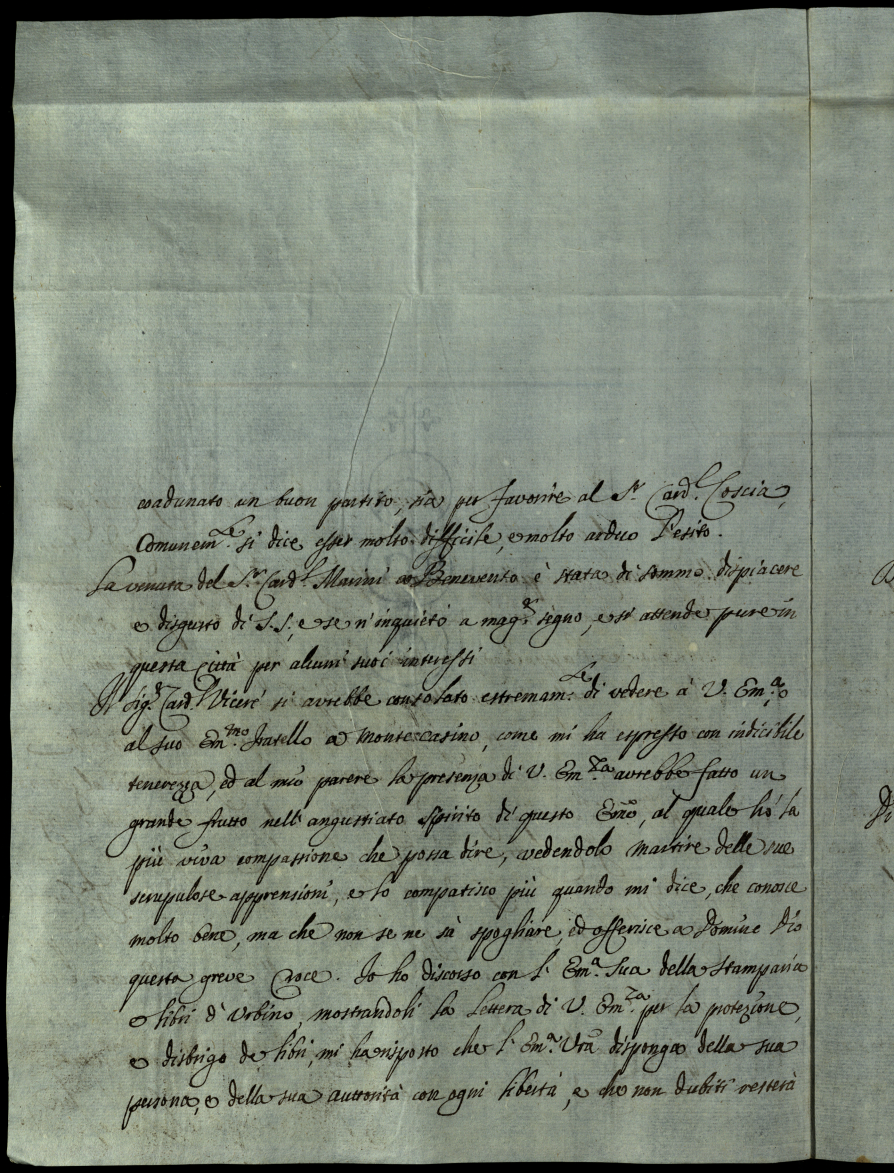 coadunato un buon partito, sia per favorire al Sr. Card.l Coscia,
Comunem.te si dice esser molto difficile, e molto arduo l'esito.
La venuta del Sr. Card.l Marini a Benevento è stata di sommo dispiacere
e disgusto di S.S., e se n'inquietò a magr. segno, e si attende pure in
questa Città per alcuni suoi interessi
Il Sigr. Card.l Vicerè si avrebbe consolato estremam.te di vedere à V. Em.a, o
al suo Em.mo Fratello a Monte casino, come mi ha espresso con indicibile
tenerezza, ed al mio parere la presenza di V. Em.za avrebbe fatto un
grande frutto nell'angustiato Spirito di questo Emo, al quale hò la
più viva compassione che possa dire, vedendolo martire delle sue
scrupulose apprensioni, e lo compatisco più quando mi dice, che conosce
molto bene, ma che non se ne sà spogliare, ed offerisce a Domine Dio
questa greve Croce. Io ho discorso con l'Em.a Sua della Stamparia
e libri d'Urbino, mostrandoli la Lettera di V. Em.za per la protezione,
e disbrigo de libri, mi ha risposto che l'Em.a Vra disponga della sua
persona, e della sua auttorità con ogni libertà, e che non dubiti resterà